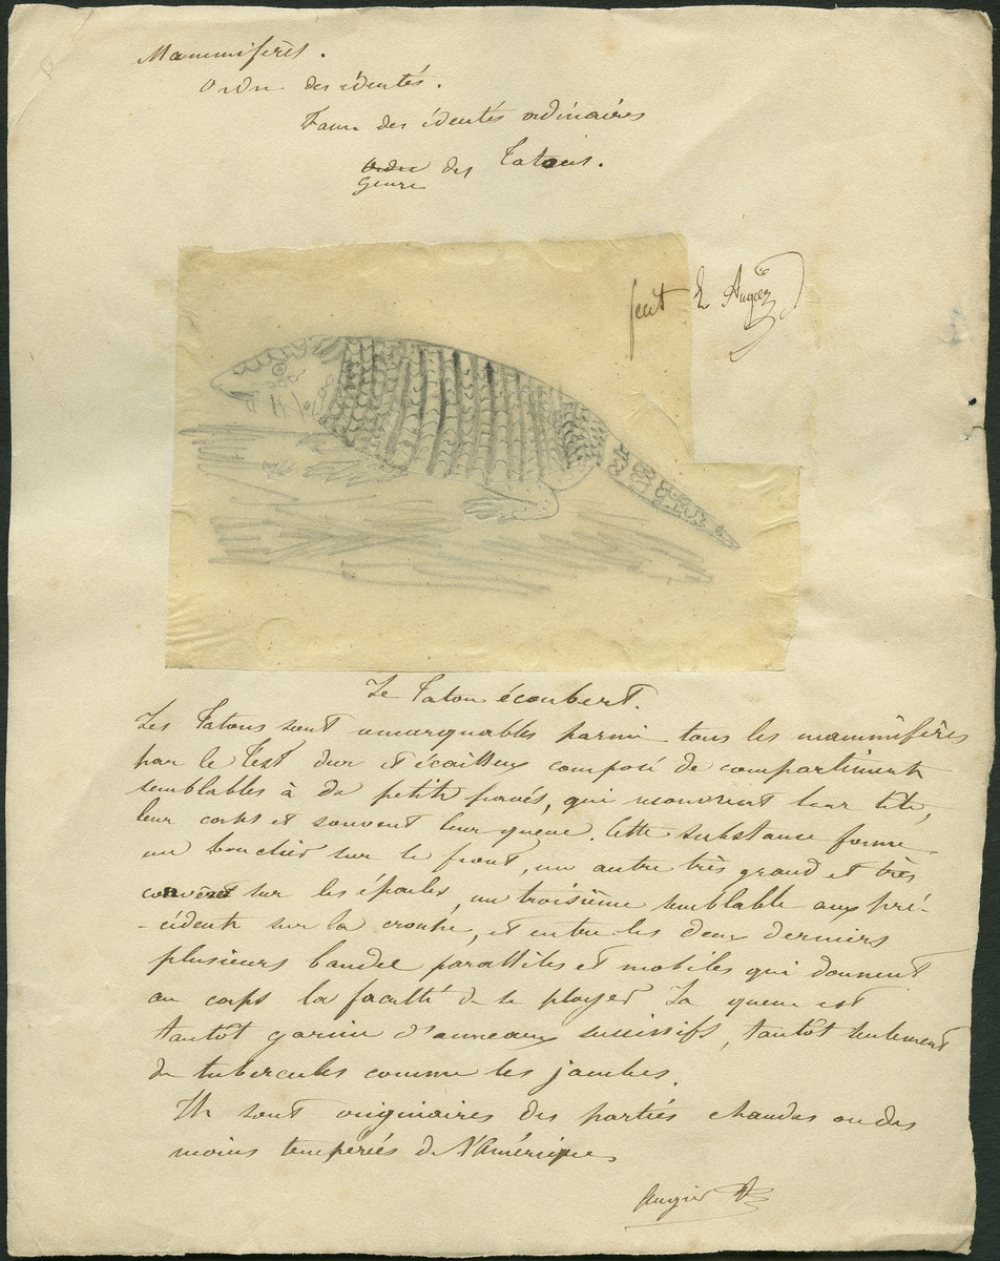 Mammifères.
Ordre des édentés.
Fam. des édentés ordinaires
Ordre des Tatous.
Genre
fecit E Augier
Le Tatou écoubert.
Les Tatous sont remarquables parmi tous les mammifères
par le Test dur et écailleux composé de compartiments
semblables à de petits pavés, qui recouvrent leur tête,
leur corps et souvent leur queue. Cette substance forme
un bouclier sur le front, un autre très grand et très
convexe sur les épaules, un troisième semblable aux pré-
-cédents sur la croupe, et entre les deux derniers
plusieurs bandes parallèles et mobiles qui donnent
au corps la faculté de se ployer La queue est
tantôt garnie d'anneaux successifs, tantôt seulement
de tubercules comme les jambes.
Ils sont originaires des parties chaudes ou des
moins tempérées de l'Amérique
Augier